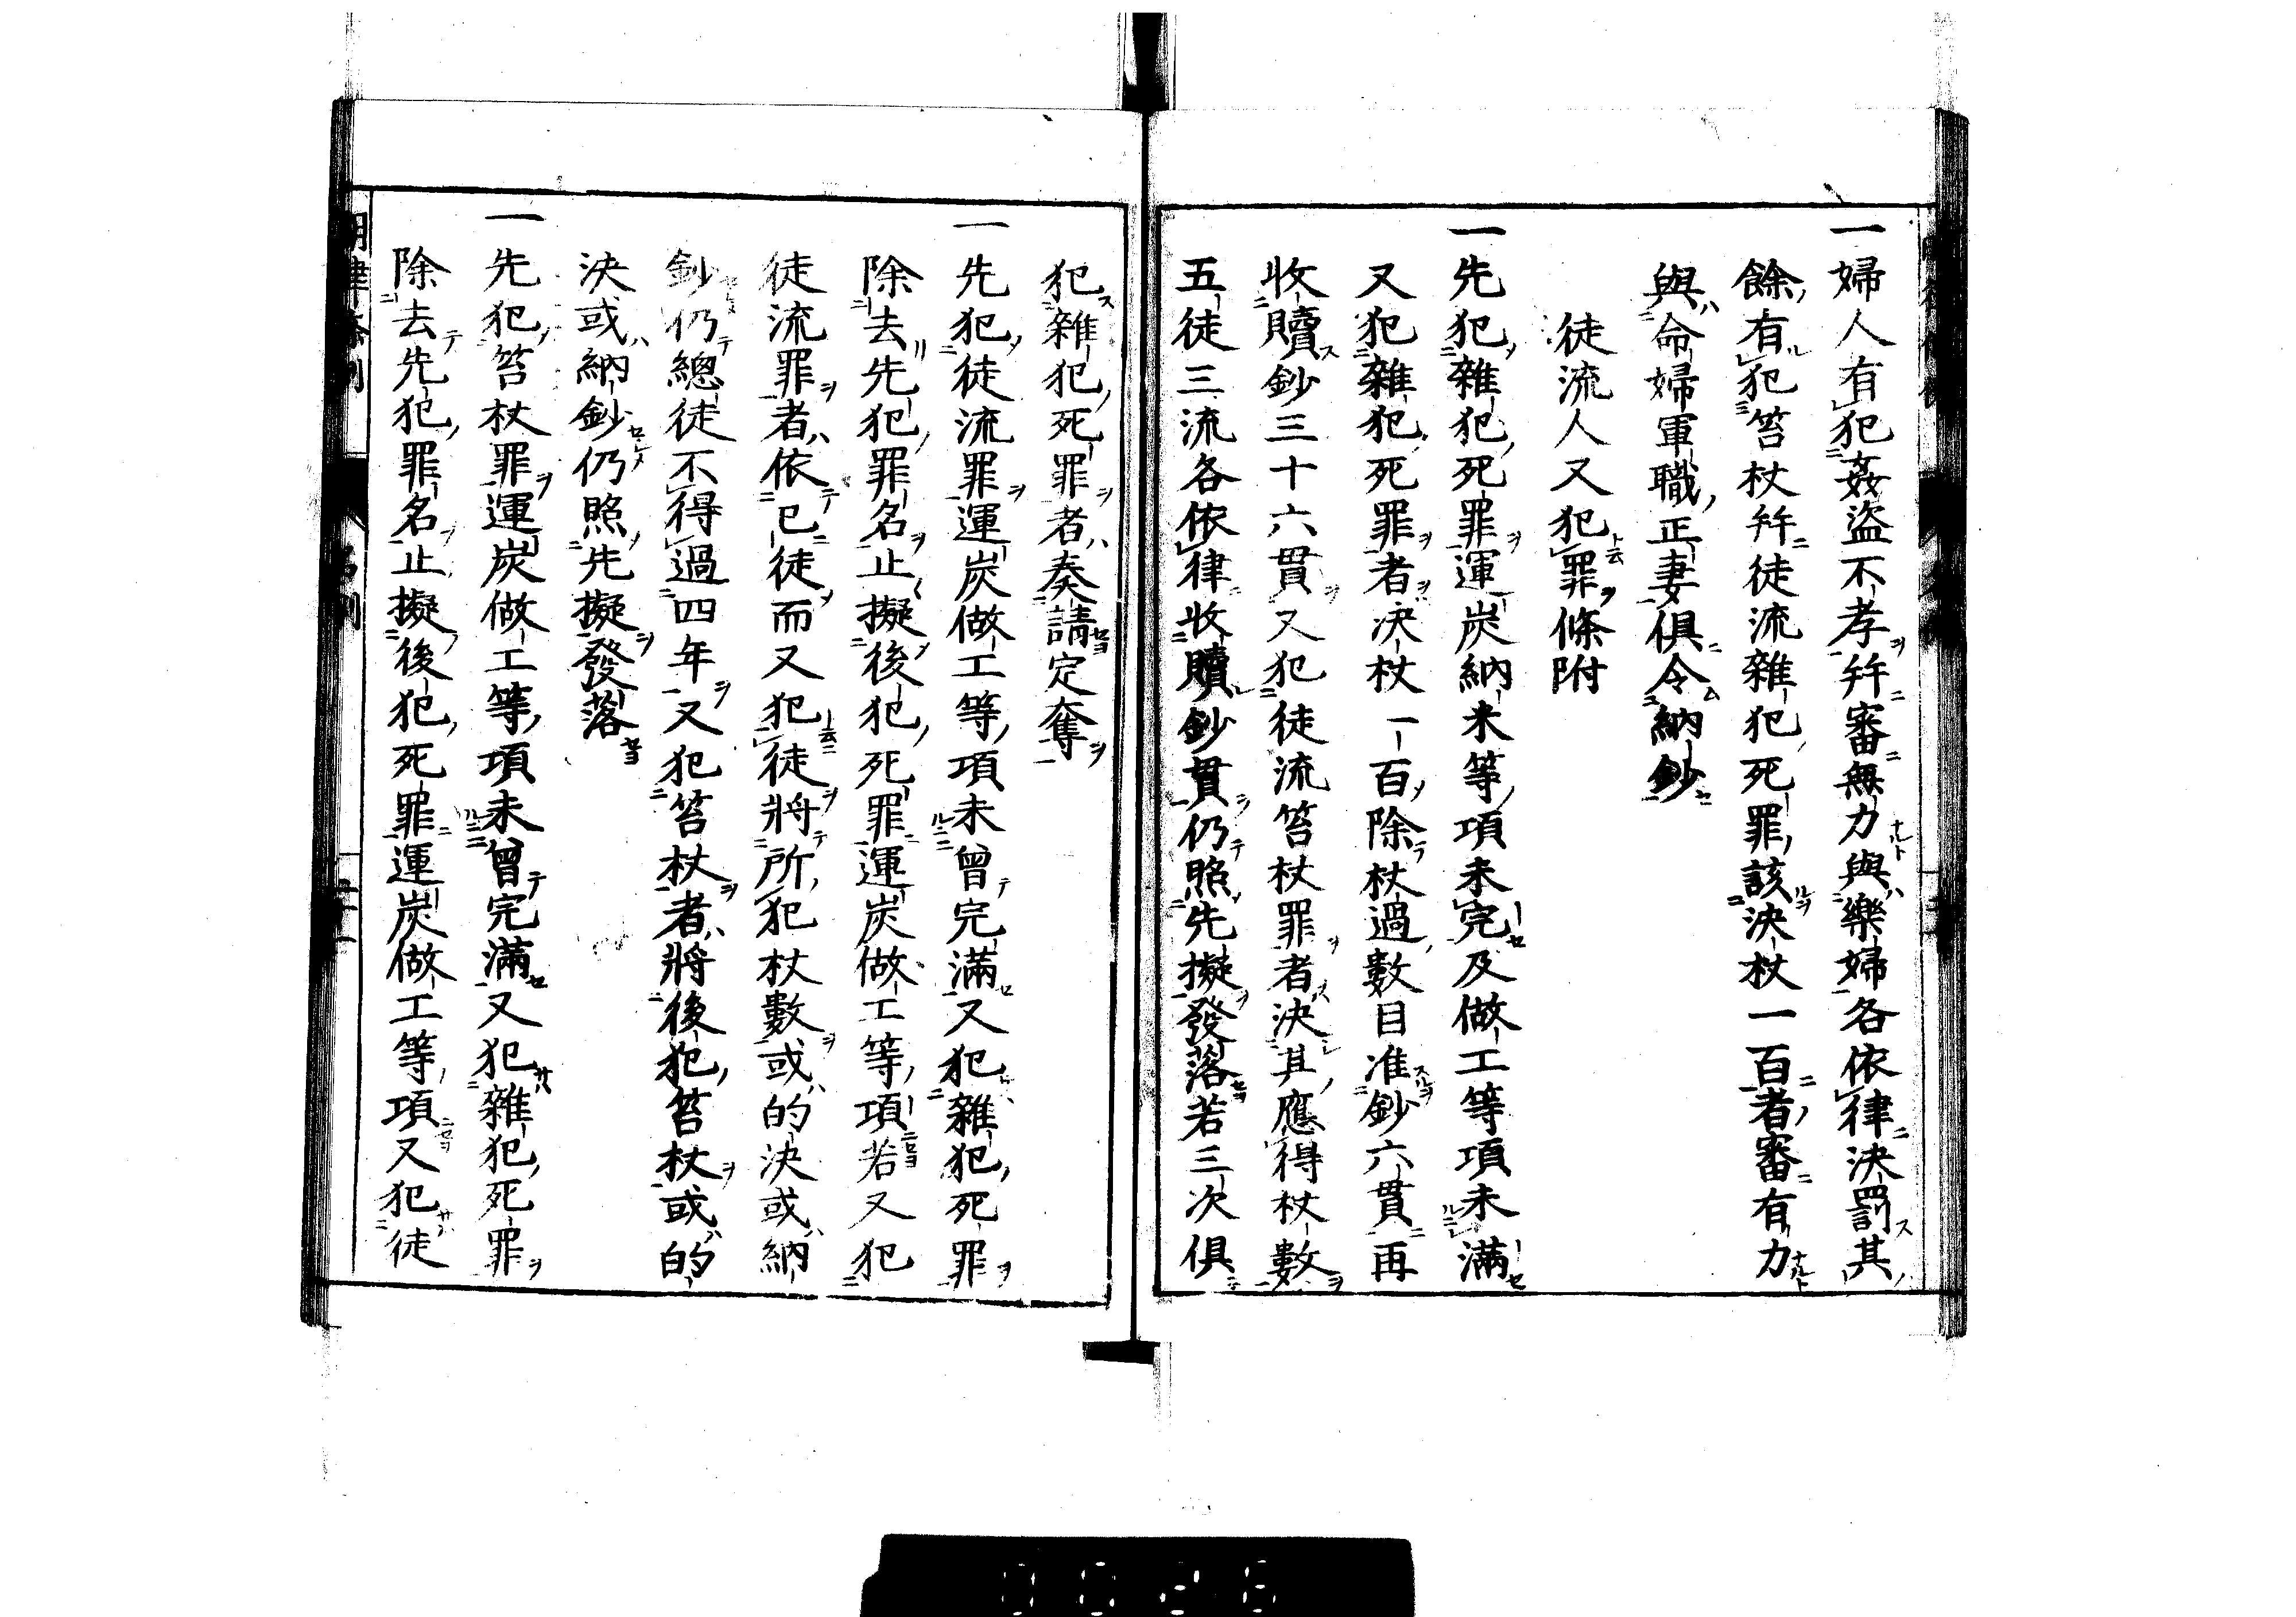 一婦人有犯姦盜不孝幷審無力與樂婦各依律決罰其
餘有犯笞杖幷徒流雜犯死罪該決杖一百者審有力
與命婦軍職正妻俱令納鈔
徒流人又犯罪條附
一先犯雜犯死罪運炭納米等項未完及做工等項未滿
又犯雜犯死罪者決杖一百除杖過數目准鈔六貫再
收贖鈔三十六貫又犯徒流笞杖罪者決其應得杖數
五徒三流各依律收贖鈔貫仍照先擬發落若三次俱
犯雜犯死罪者奏請定奪
一先犯徒流罪運炭做工等項未曾完滿又犯雜犯死罪
除去先犯罪名止擬後犯死罪運炭做工等項若又犯
徒流罪者依已徒而又犯徒將所犯杖數或的決或納
鈔仍總徒不得過四年又犯笞杖者將後犯笞杖或的
決或納鈔仍照先擬發落
一先犯笞杖罪運炭做工等項未曾完滿又犯雜犯死罪
除去先犯罪名止擬後犯死罪運炭做工等項又犯徒